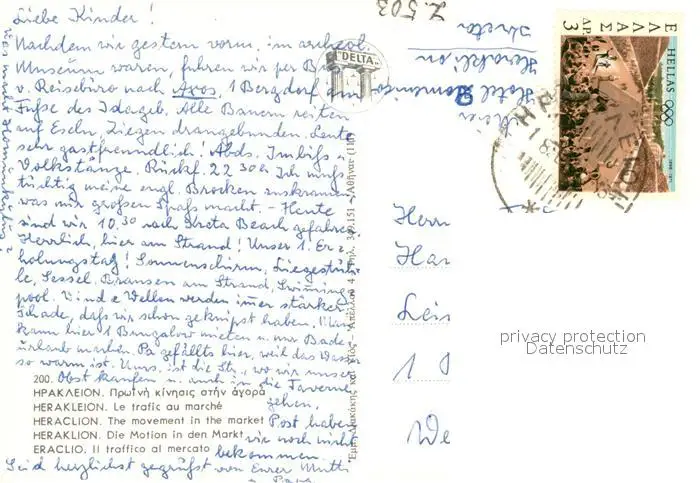 Z. 503
Liebe Kinder!
Nachdem wir gestern vorm. im archeol.
Museum waren, fuhren wir per B
v. Reisebüro nach Axos, 1 Bergdorf am
Fuße des Idageb. Alle Bauern reiten
auf Eseln, Ziegen drangebunden. Leute
sehr gastfreundlich! Abds. Imbiß u.
Volkstänze. Rückf. 22 30 h. Ich muß
tüchtig meine engl. Brocken auskramen
was mir großen Spaß macht. - Heute
sind wir 10.30 nach Kreta Beach gefahren
Herrlich, hier am Strand! Unser 1. Er=
holungstag! Sonnenschirm, Liegestüh=
le, Sessel. Brausen am Strand, Swimming
pool. Wind u Wellen werden immer stärker.
Schade, daß wir schon geknipst haben. Man
kann hier 1 Bungalow mieten u. nur Bade=
urlaub machen. Pa gefällts hier, weil das Wasser
so warm ist. Uns. ist die Str., wo wir unser
Obst kaufen u. auch in die Taverne
gehen.
Post haben
wir noch nicht
bekommen.
Seid herzlichst gegrüßt von Eurer Mutti
u. Papa
was macht
200.
ΗΡΑΚΛΕΙΟΝ. Πρωϊνή κίνησις στήν άγορά
HERAKLEION. Le trafic au marché
HERACLION. The movement in the market
HERAKLION. Die Motion in den Markt
ERACLIO. Il traffico al mercato
DELTA
Hotel
Heraklion
Kreta
ΕΛΛΑΣ
ΔΡ. 3
HELLAS
Herrn
Har
Lei
1
We
privacy protection
Datenschutz